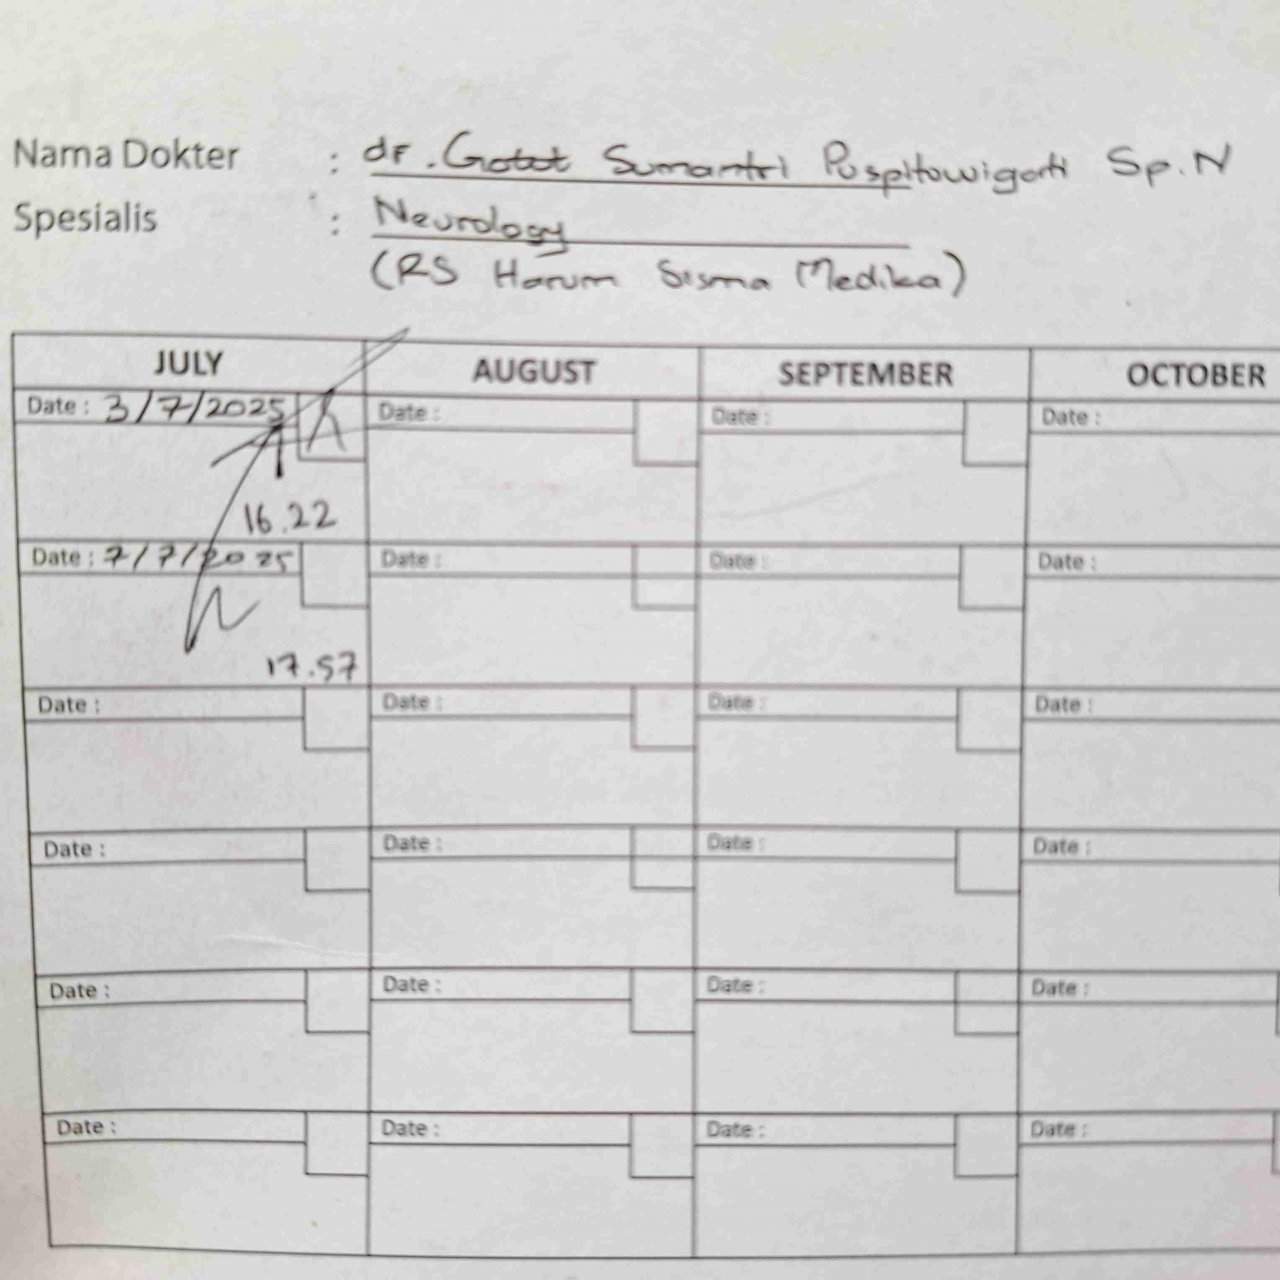 Nama Dokter : dr. Gatot Sumantri Puspitowigati Sp.N
Spesialis : Neurology
(RS Harum Sisma Medika)
JULY AUGUST SEPTEMBER OCTOBER
Date : 3/7/2025 Date : Date : Date :
16.22
Date : 7/7/2025 Date : Date : Date :
17.57
Date : Date : Date : Date :
Date : Date : Date : Date :
Date : Date : Date : Date :
Date : Date : Date : Date :